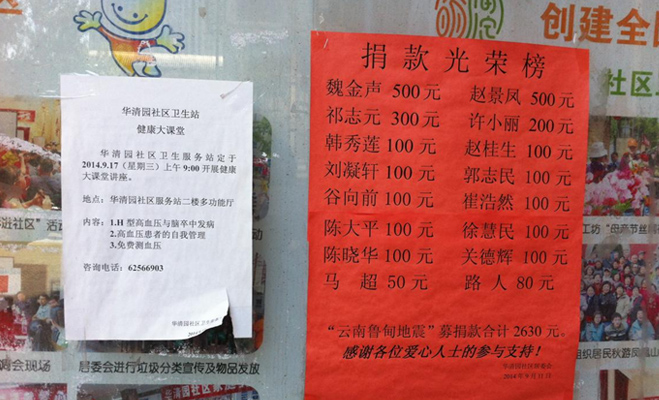 创建全
社区
华清园社区卫生站
健康大课堂
华清园社区卫生服务站定于
2014.9.17（星期三）上午 9:00 开展健康
大课堂讲座。
地点：华清园社区服务站二楼多功能厅
内容：1.H 型高血压与脑卒中发病
2.高血压患者的自我管理
3.免费测血压
咨询电话：62566903
华清园社区卫生
捐款光荣榜
魏金声 500 元 赵景凤 500 元
祁志元 300 元 许小丽 200 元
韩秀莲 100 元 赵桂生 100 元
刘凝轩 100 元 郭志民 100 元
谷向前 100 元 崔浩然 100 元
陈大平 100 元 徐慧民 100 元
陈晓华 100 元 关德辉 100 元
马 超 50 元 路 人 80 元
“云南鲁甸地震”募捐款合计 2630 元。
感谢各位爱心人士的参与支持！
华清园社区居委会
2014 年 9 月 11 日
社区”活
工坊“母亲节丝
调会现场
居委会进行垃圾分类宣传及物品发放
组织居民秋路凤凰山